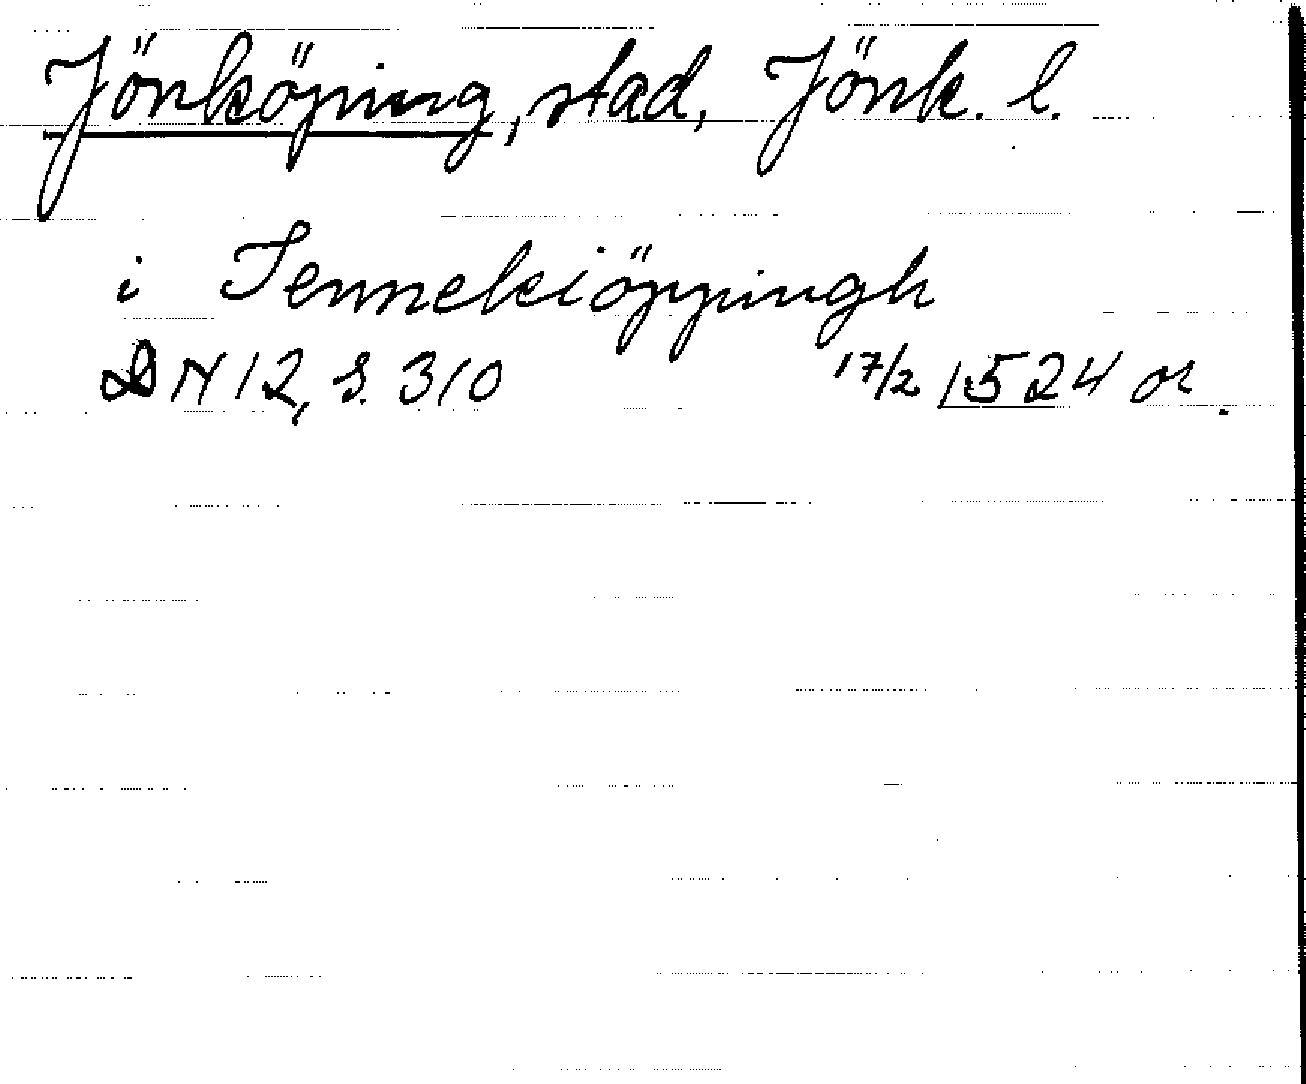 Jönköping, stad, Jönk. l.
i Jennekiöppingh
DN 12, s. 310 17/2 1524 or.